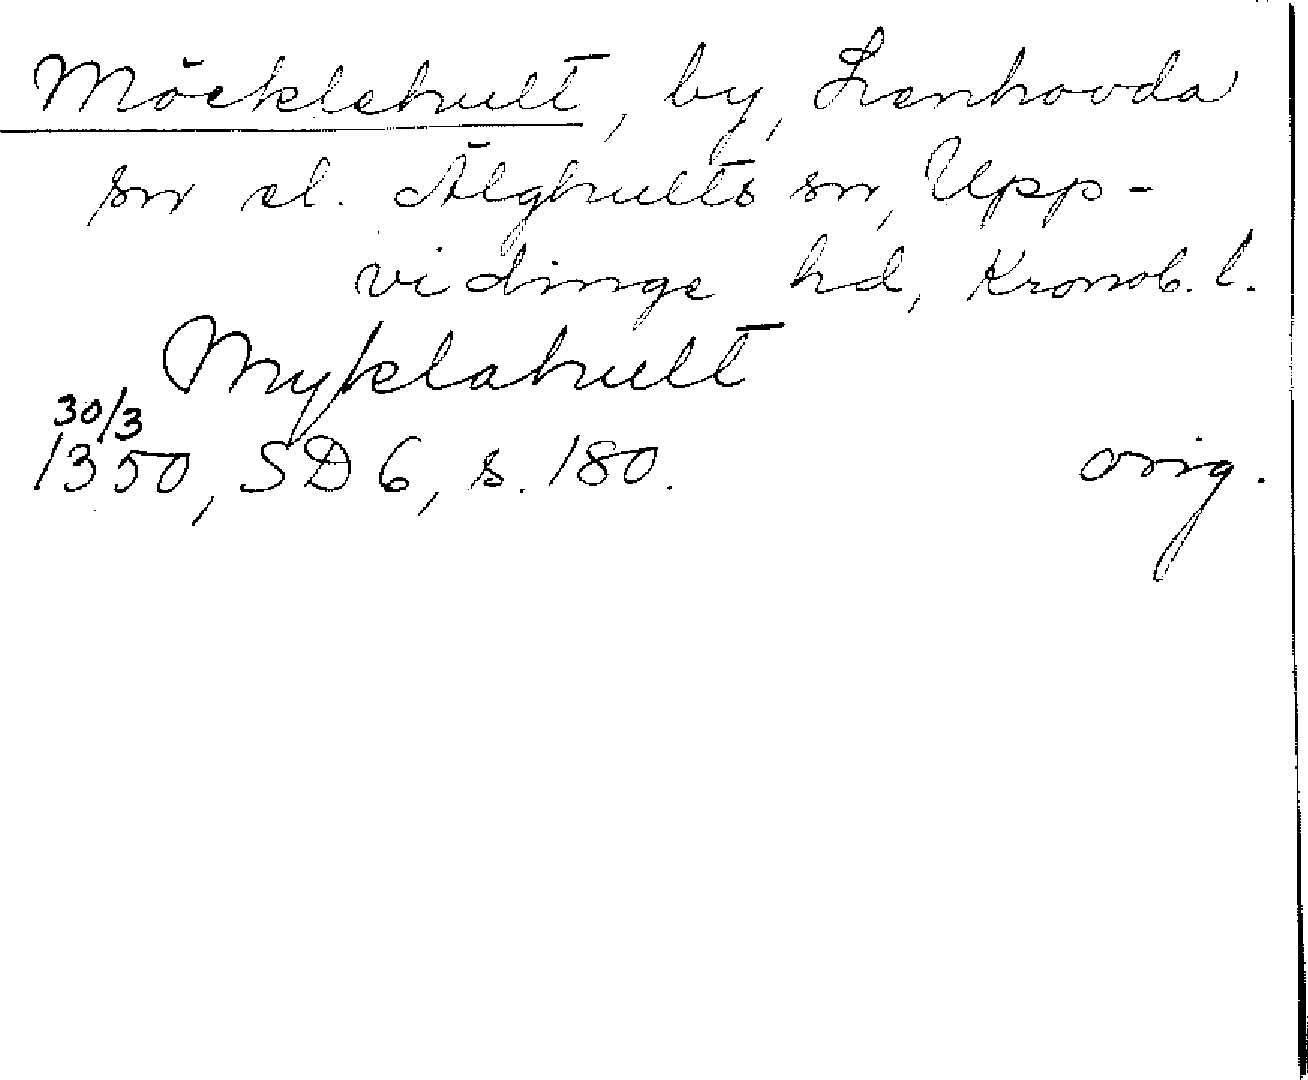 Möcklehult, by, Lenhovda
sn el. Älghults sn, Upp-
vidinge hd, Kronob. l.
Myklahult
30/3
1350, SD 6, s. 180. orig.